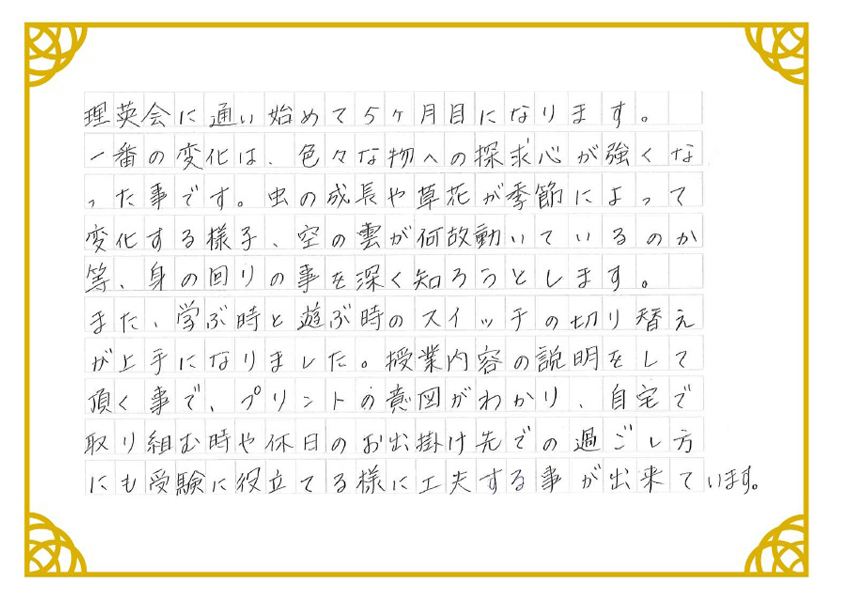 理英会に通い始めて5ヶ月目になります。
一番の変化は、色々な物への探求心が強くな
った事です。虫の成長や草花が季節によって
変化する様子、空の雲が何故動いているのか
等、身の回りの事を深く知ろうとします。
また、学ぶ時と遊ぶ時のスイッチの切り替え
が上手になりました。授業内容の説明をして
頂く事で、プリントの意図がわかり、自宅で
取り組む時や休日のお出掛け先での過ごし方
にも受験に役立てる様に工夫する事が出来ています。